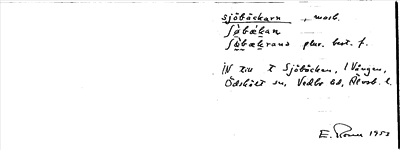 sjöbäckarn , mask.
ʃøbækan
ʃøbækrans plur. best. f.
IN till t Sjöbäcken, i Vången,
Ödskölt sn, Vedbo hd, Älvsb. l.
E. 1953